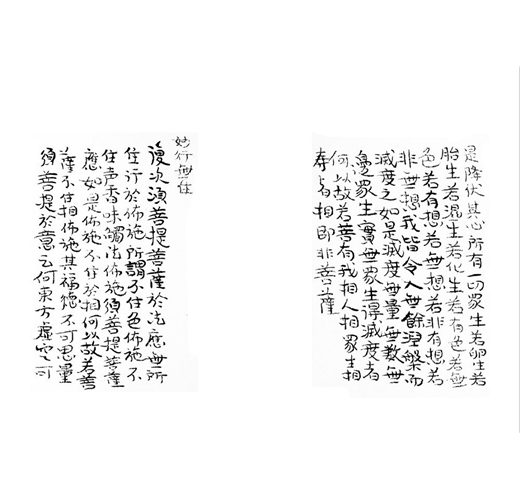 是降伏其心所有一切眾生若卵生若
胎生若濕生若化生若有色若無
色若有想若無想若非有想若
非無想我皆令入無餘涅槃而
滅度之如是滅度無量無數無
邊眾生實無眾生得滅度者
何以故若菩有我相人相眾生相
壽者相即非菩薩
妙行無住
復次須菩提菩薩於法應無所
住行於佈施所謂不住色佈施不
住声香味觸法佈施須菩提菩薩
應如是佈施不住於相何以故若菩
薩不住相佈施其福德不可思量
須菩提於意云何東方虛空可